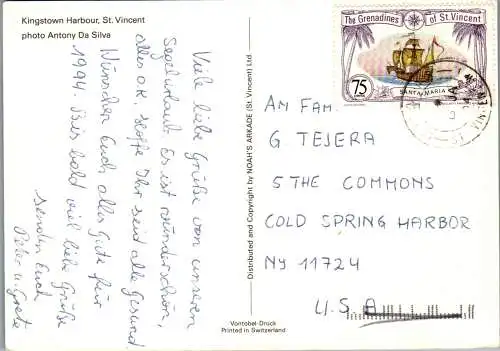 Kingstown Harbour, St. Vincent
photo Antony Da Silva
Viele liebe Grüße von unseren
Segelurlaub. Es ist wunderschön,
alles O.K. Hoffe Ihr seit alle Gesund.
Wünschen Euch alles Gute für
1994. Bis bald viel liebe Grüße
senden Euch
Peter u. Grete
Distributed and Copyright by NOAH'S ARKADE (St. Vincent) Ltd
Vontobel-Druck
Printed in Switzerland
The Grenadines of St. Vincent
75
SANTA MARIA
AM FAM.
G. TEJERA
5 THE COMMONS
COLD SPRING HARBOR
NY 11724
U.S.A